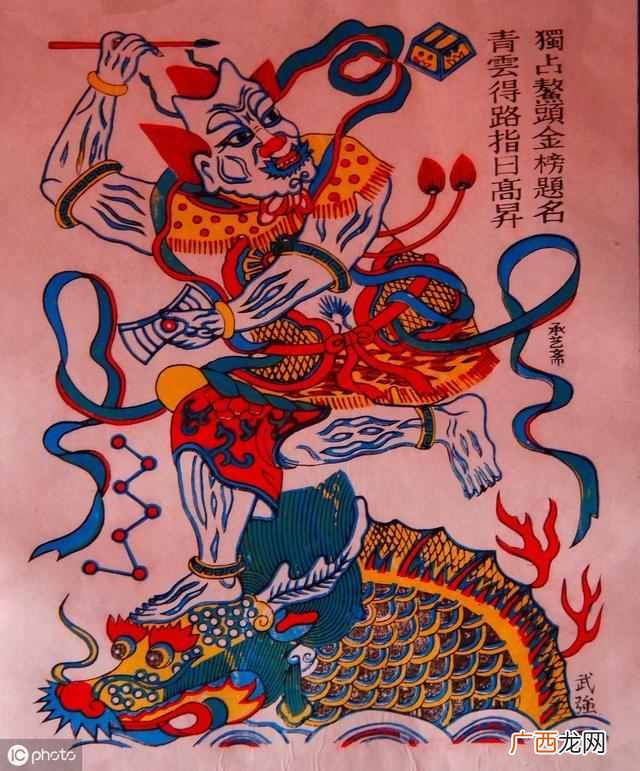 獨占鰲頭金榜題名
青雲得路指日高昇
承艺斋
武强
iC photo
广西龙网